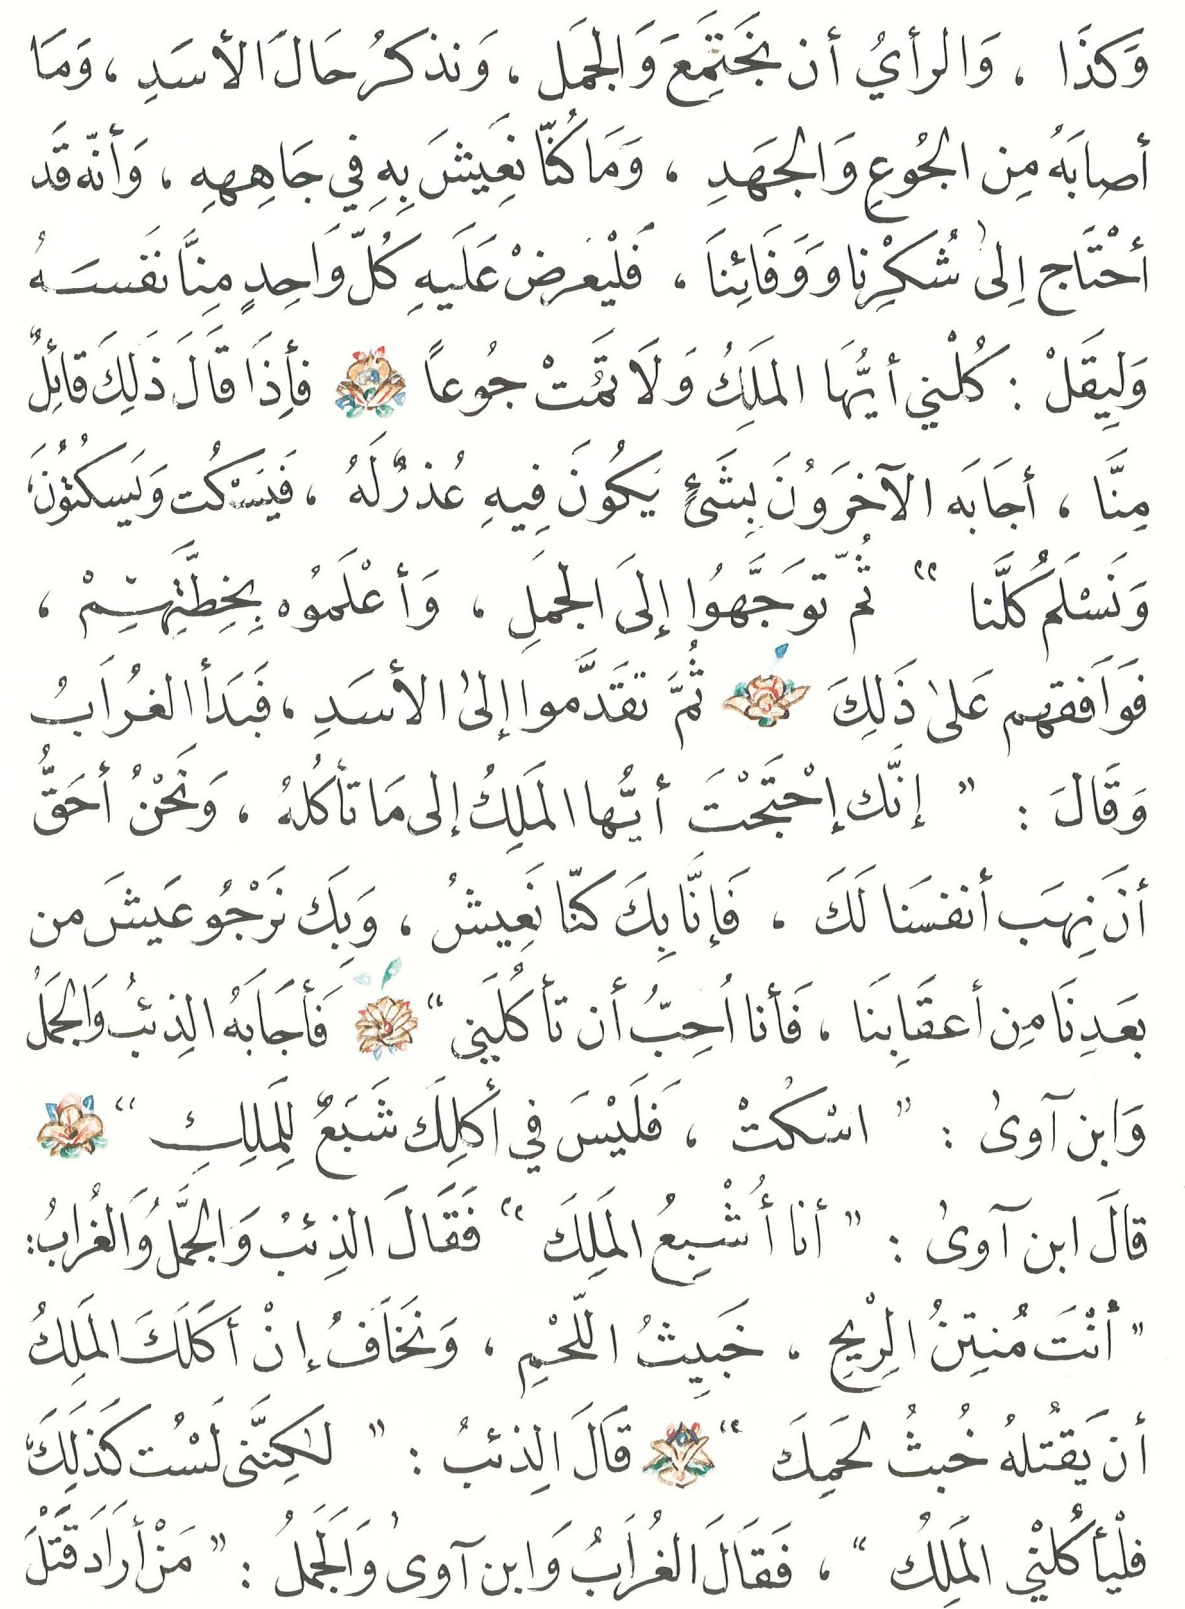 وَكَذَا ، وَالرأيُ أن نجَتَمِعَ وَالجَمَل ، وَنذكرُ حَالَ الأسَدِ ، وَمَا
أصابَهُ مِن الجُوعِ وَالجَهَدِ ، وَمَا كُنّا نعِيشَ بِهِ فِي جَاهِهِ ، وَأنّه قَد
أحْتَاج إلىٰ شُكرِنا وَوَفَائِنَا ، فَلْيْعرضْ عَلَيهِ كُلّ وَاحِدٍ مِنَّا نَفسَهُ
وَلِيقَلْ : كُلْني أيُّهَا الملَكُ وَلَا تمُتْ جُوعاً فأِذَا قَالَ ذَلِكَ قائِلٌ
مِنَّا ، أجَابَه الآخرَوُنَ بِشَئٍ يَكُونَ فِيهِ عُذرٌ لَهُ ، فَيَسْكُت وَيَسكتُوُنَ ،
وَنَسْلَم كُلَّنا “ ثُمّ توَجَّهُوا إلىَ الجَملِ ، وَأعْلَمُوه بِخِطَّتِهِمْ ،
فَوَافقهم عَلىٰ ذَلِكَ ثُمَّ تقَدَّموا إلىٰ الأسَدِ ، فَبَدَأ الغُرَابُ
وَقَالَ : ” إنَّك إحْتَجْتَ أيُّها المَلِكُ إلى مَا تأكلهُ ، وَنَحْنُ أحَقُّ
أنَ نِهَب أنفسَنا لَكَ ، فَإنَّا بِكَ كنّا نَعِيشُ ، وَبِكَ نَرْجُو عَيشَ من
بَعدِنَا مِن أعقَابِنَا ، فَأنا أحِبُّ أن تأكُلَنِي “ فَأجَابَهُ الذِئبُ وَالجَمَلُ
وَابن آوىٰ : ” اسْكتْ ، فَلَيْسَ في أكلِكَ شَبَعٌ لِلَملِكِ “
قالَ ابن آوىٰ : ” أنا أُشْبِعُ المَلِكَ “ فَقَالَ الذِئبُ وَالجَّملُ وَالغُرابُ :
” أنْتَ مُنتِنُ الرِيْحِ ، خَبِيثُ اللّحْمِ ، وَنَخَافُ إنْ أكَلَكَ المَلِكُ
أن يَقتُلهُ خُبثُ لحَمِكَ “ قَالَ الذِئبُ : ” لكِنَّني لَسْت كَذَلِكَ
فلْيأكُلْنْي المَلِكُ “ ، فَقَالَ الغُرابُ وَابن آوىٰ وَالَجَملُ : ” مَنْ أرَادَ قَتْلَ